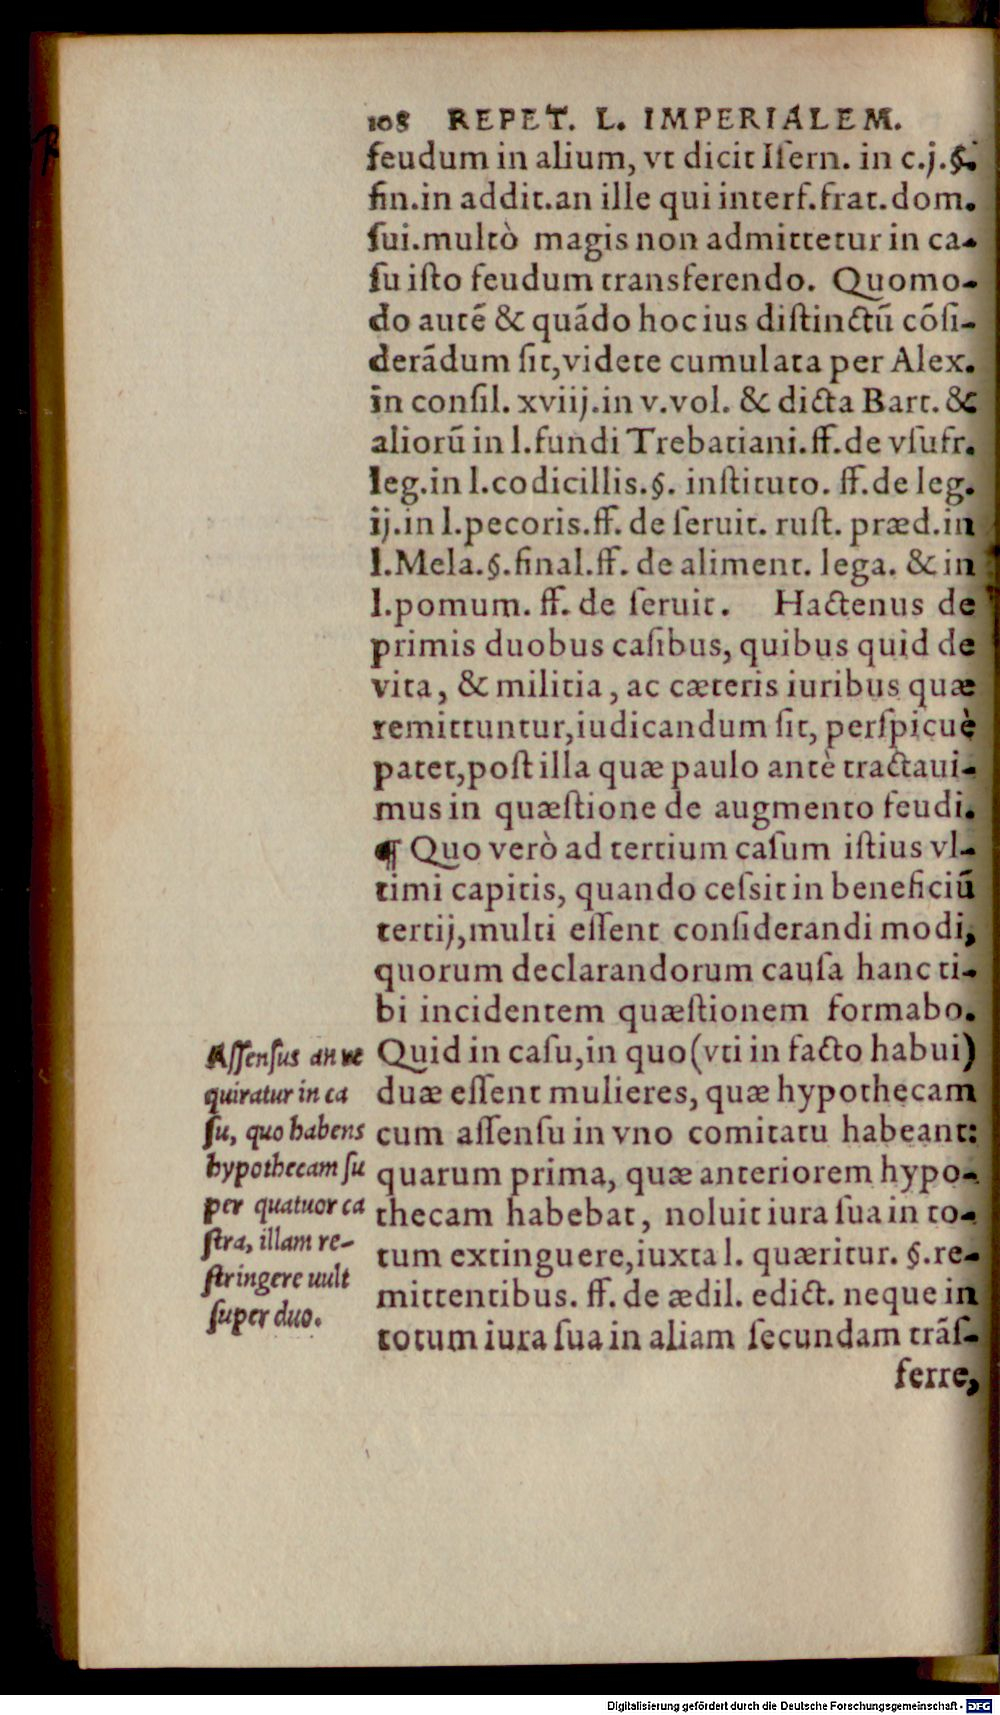 108 REPET. L. IMPERIALEM.
feudum in alium, vt dicit Iſern. in c.j.§.
fin.in addit.an ille qui interf.frat.dom.
ſui.multò magis non admittetur in ca-
ſu iſto feudum transferendo. Quomo-
do autē & quãdo hoc ius diſtinctũ cõſi-
derãdum ſit,videte cumulata per Alex.
in conſil. xviij.in v.vol. & dicta Bart. &
aliorũ in l.fundi Trebatiani.ff.de vſufr.
leg.in l.codicillis.§. inſtituto. ff.de leg.
ij.in l.pecoris.ff. de ſeruit. ruſt. præd.in
l.Mela.§.final.ff. de aliment. lega. & in
l.pomum. ff. de ſeruit. Hactenus de
primis duobus caſibus, quibus quid de
vita, & militia, ac cæteris iuribus quæ
remittuntur,iudicandum ſit, perſpicuè
patet,poſt illa quæ paulo antè tractaui-
mus in quæſtione de augmento feudi.
¶ Quo verò ad tertium caſum iſtius vl-
timi capitis, quando ceſsit in beneficiũ
tertij,multi eſſent conſiderandi modi,
quorum declarandorum cauſa hanc ti-
bi incidentem quæſtionem formabo.
Quid in caſu,in quo(vti in facto habui)
duæ eſſent mulieres, quæ hypothecam
cum aſſenſu in vno comitatu habeant:
quarum prima, quæ anteriorem hypo-
thecam habebat, noluit iura ſua in to-
tum extinguere,iuxta l. quæritur. §.re-
mittentibus. ff. de ædil. edict. neque in
totum iura ſua in aliam ſecundam trãſ-
ferre,
Aſſenſus an re
quiratur in ca
ſu, quo habens
hypothecam ſu
per quatuor ca
ſtra, illam re-
ſtringere uult
ſuper duo.
Digitalisierung gefördert durch die Deutsche Forschungsgemeinschaft - DFG